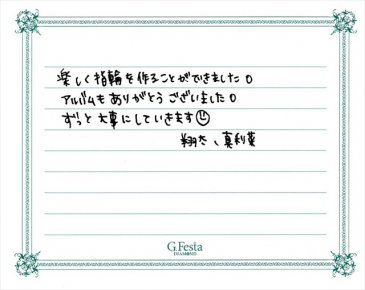 楽しく指輪を作ることができました。
アルバムもありがとうございました。
ずっと大事にしていきます
翔太、真利菜
G.Festa
DIAMOND